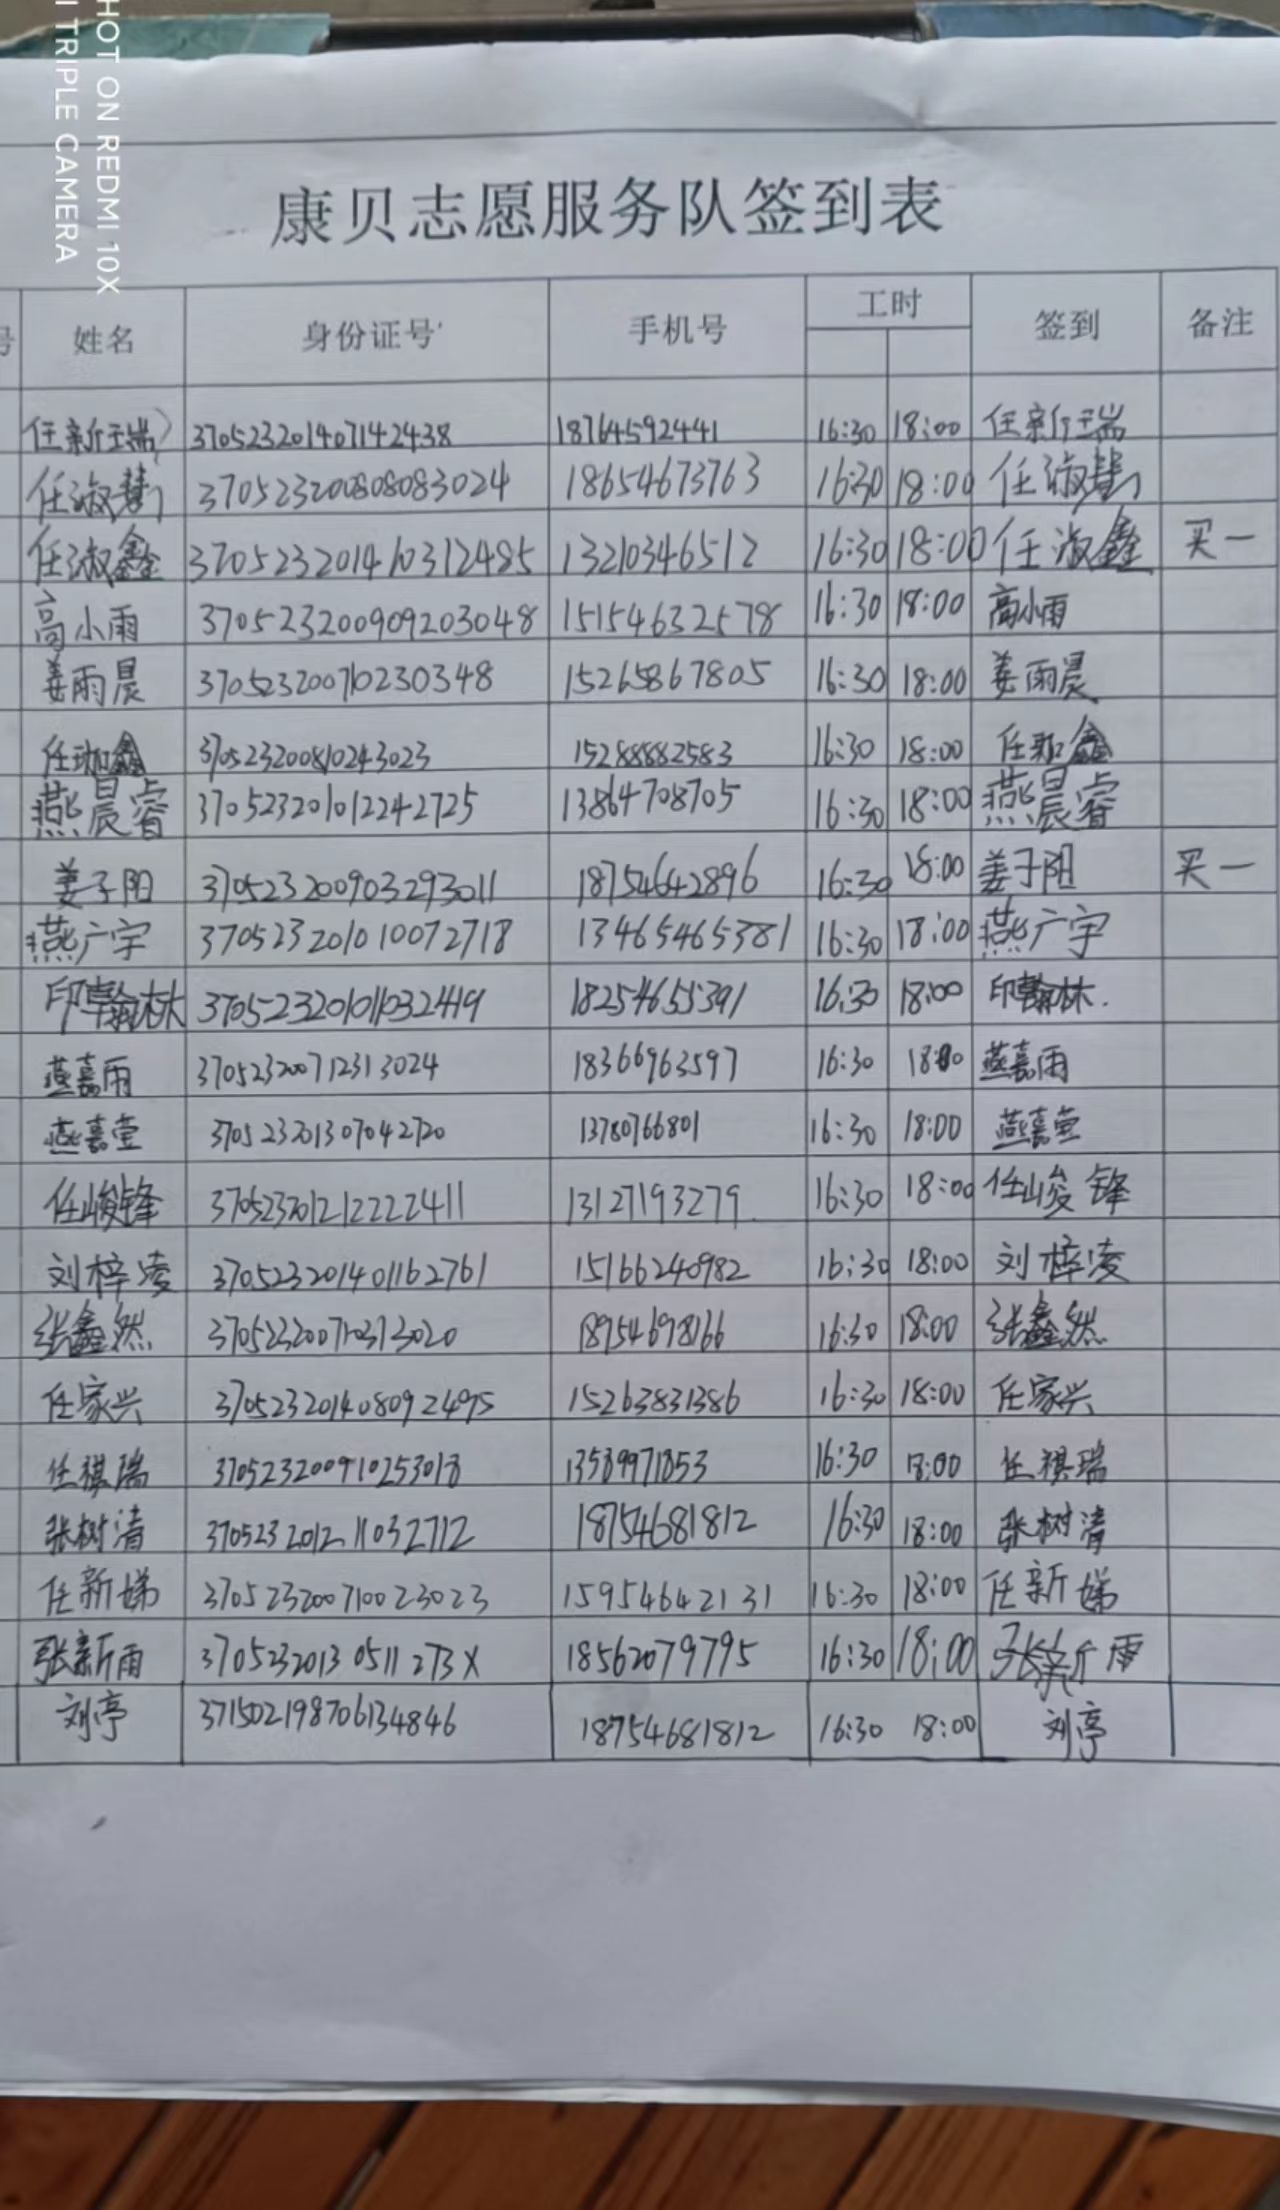 SHOT ON REDMI 10X
AI TRIPLE CAMERA
康贝志愿服务队签到表
号 姓名 身份证号 手机号 工时 签到 备注
任新瑞 370523201407142438 18764592441 16:30 18:00 任新瑞
任淑慧 370523200808083024 18654673763 16:30 18:00 任淑慧
任淑鑫 370523201410312485 13210346512 16:30 18:00 任淑鑫 买一
高小雨 370523200909203048 15154632578 16:30 18:00 高小雨
姜雨晨 370523200710230348 15265867805 16:30 18:00 姜雨晨
任珈鑫 370523200810243023 15288882583 16:30 18:00 任珈鑫
燕晨睿 370523201012242725 13864708705 16:30 18:00 燕晨睿
姜子阳 370523200903293011 18754642896 16:30 18:00 姜子阳 买一
燕广宇 370523201010072718 13465465381 16:30 18:00 燕广宇
印翰林 370523201011032419 18254655391 16:30 18:00 印翰林.
燕嘉雨 370523200712313024 18366963597 16:30 18:00 燕嘉雨
燕嘉萱 370523201307042720 13780766801 16:30 18:00 燕嘉萱
任峻锋 370523201212222411 13127193279 16:30 18:00 任峻锋
刘梓凌 370523201401162761 15166240982 16:30 18:00 刘梓凌
张鑫然 370523200710313020 18954698166 16:30 18:00 张鑫然
任家兴 370523201408092495 15263831386 16:30 18:00 任家兴
任祺瑞 370523200910253018 13589971853 16:30 18:00 任祺瑞
张树清 370523201211032712 18754681812 16:30 18:00 张树清
任新娣 370523200710023023 15954642131 16:30 18:00 任新娣
张新雨 37052320130511273X 18562079795 16:30 18:00 张新雨
刘亭 371502198706134846 18754681812 16:30 18:00 刘亭